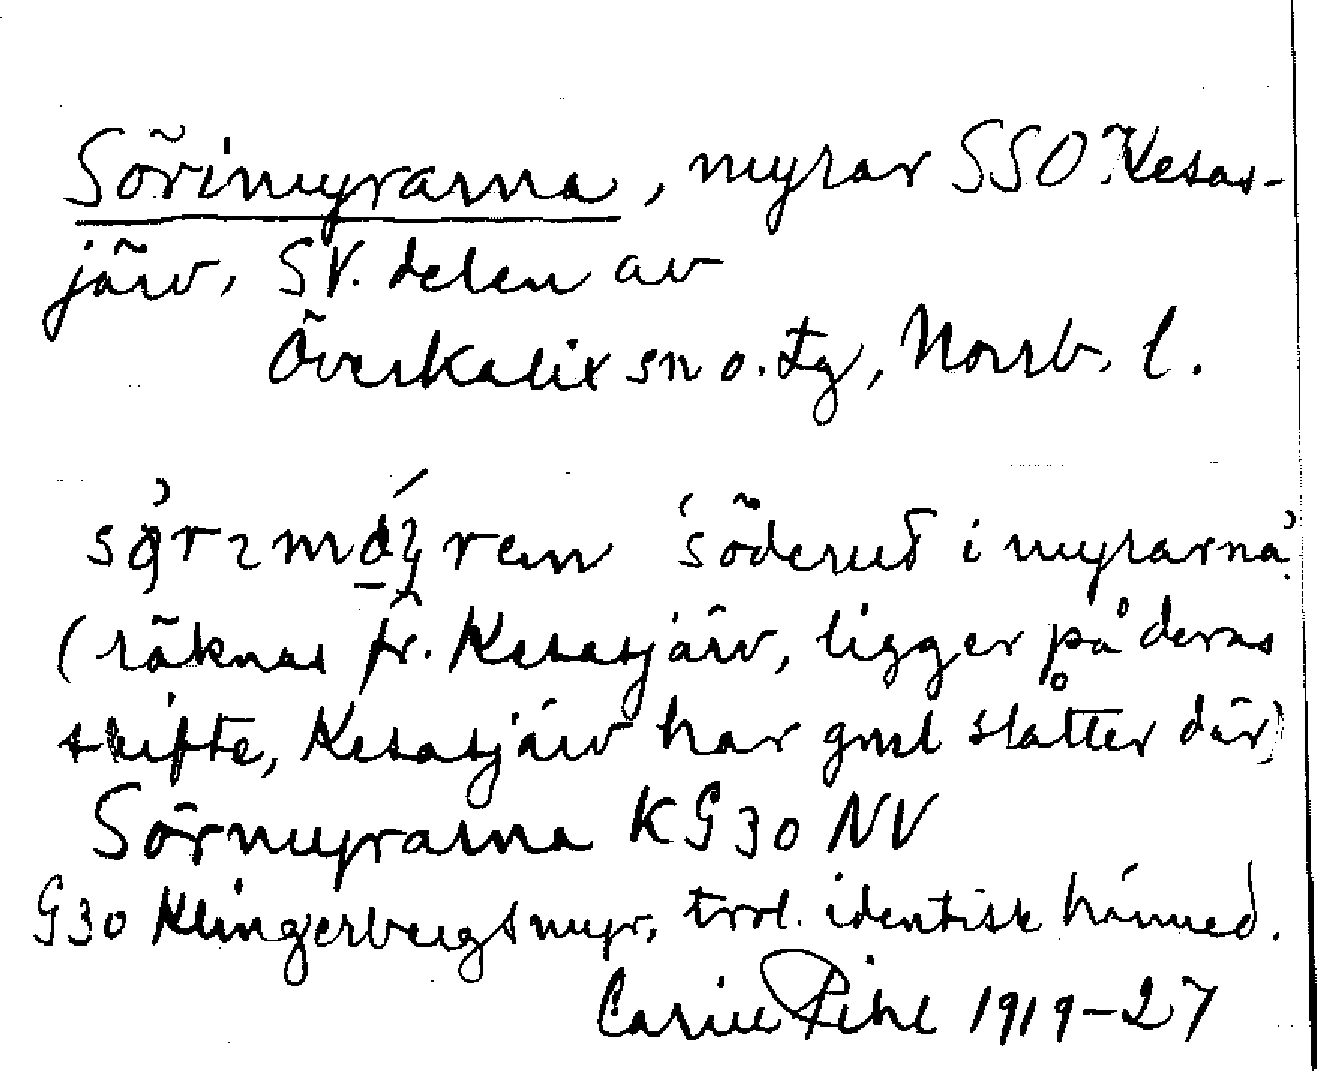 Sörimyrarna, myrar SSO Kesas-
järv, SV. delen av
Överkalix sn o. tg, Norrb. l.
'söderut i myrarna'
(räknas fr. Kesasjärv, ligger på deras
skifte, Kesasjärv har gml slåtter där)
Sörmyrarna KG30 NV
G30 Klingerbergsmyr, trol. identisk härmed.
Carin Pihl 1919-27